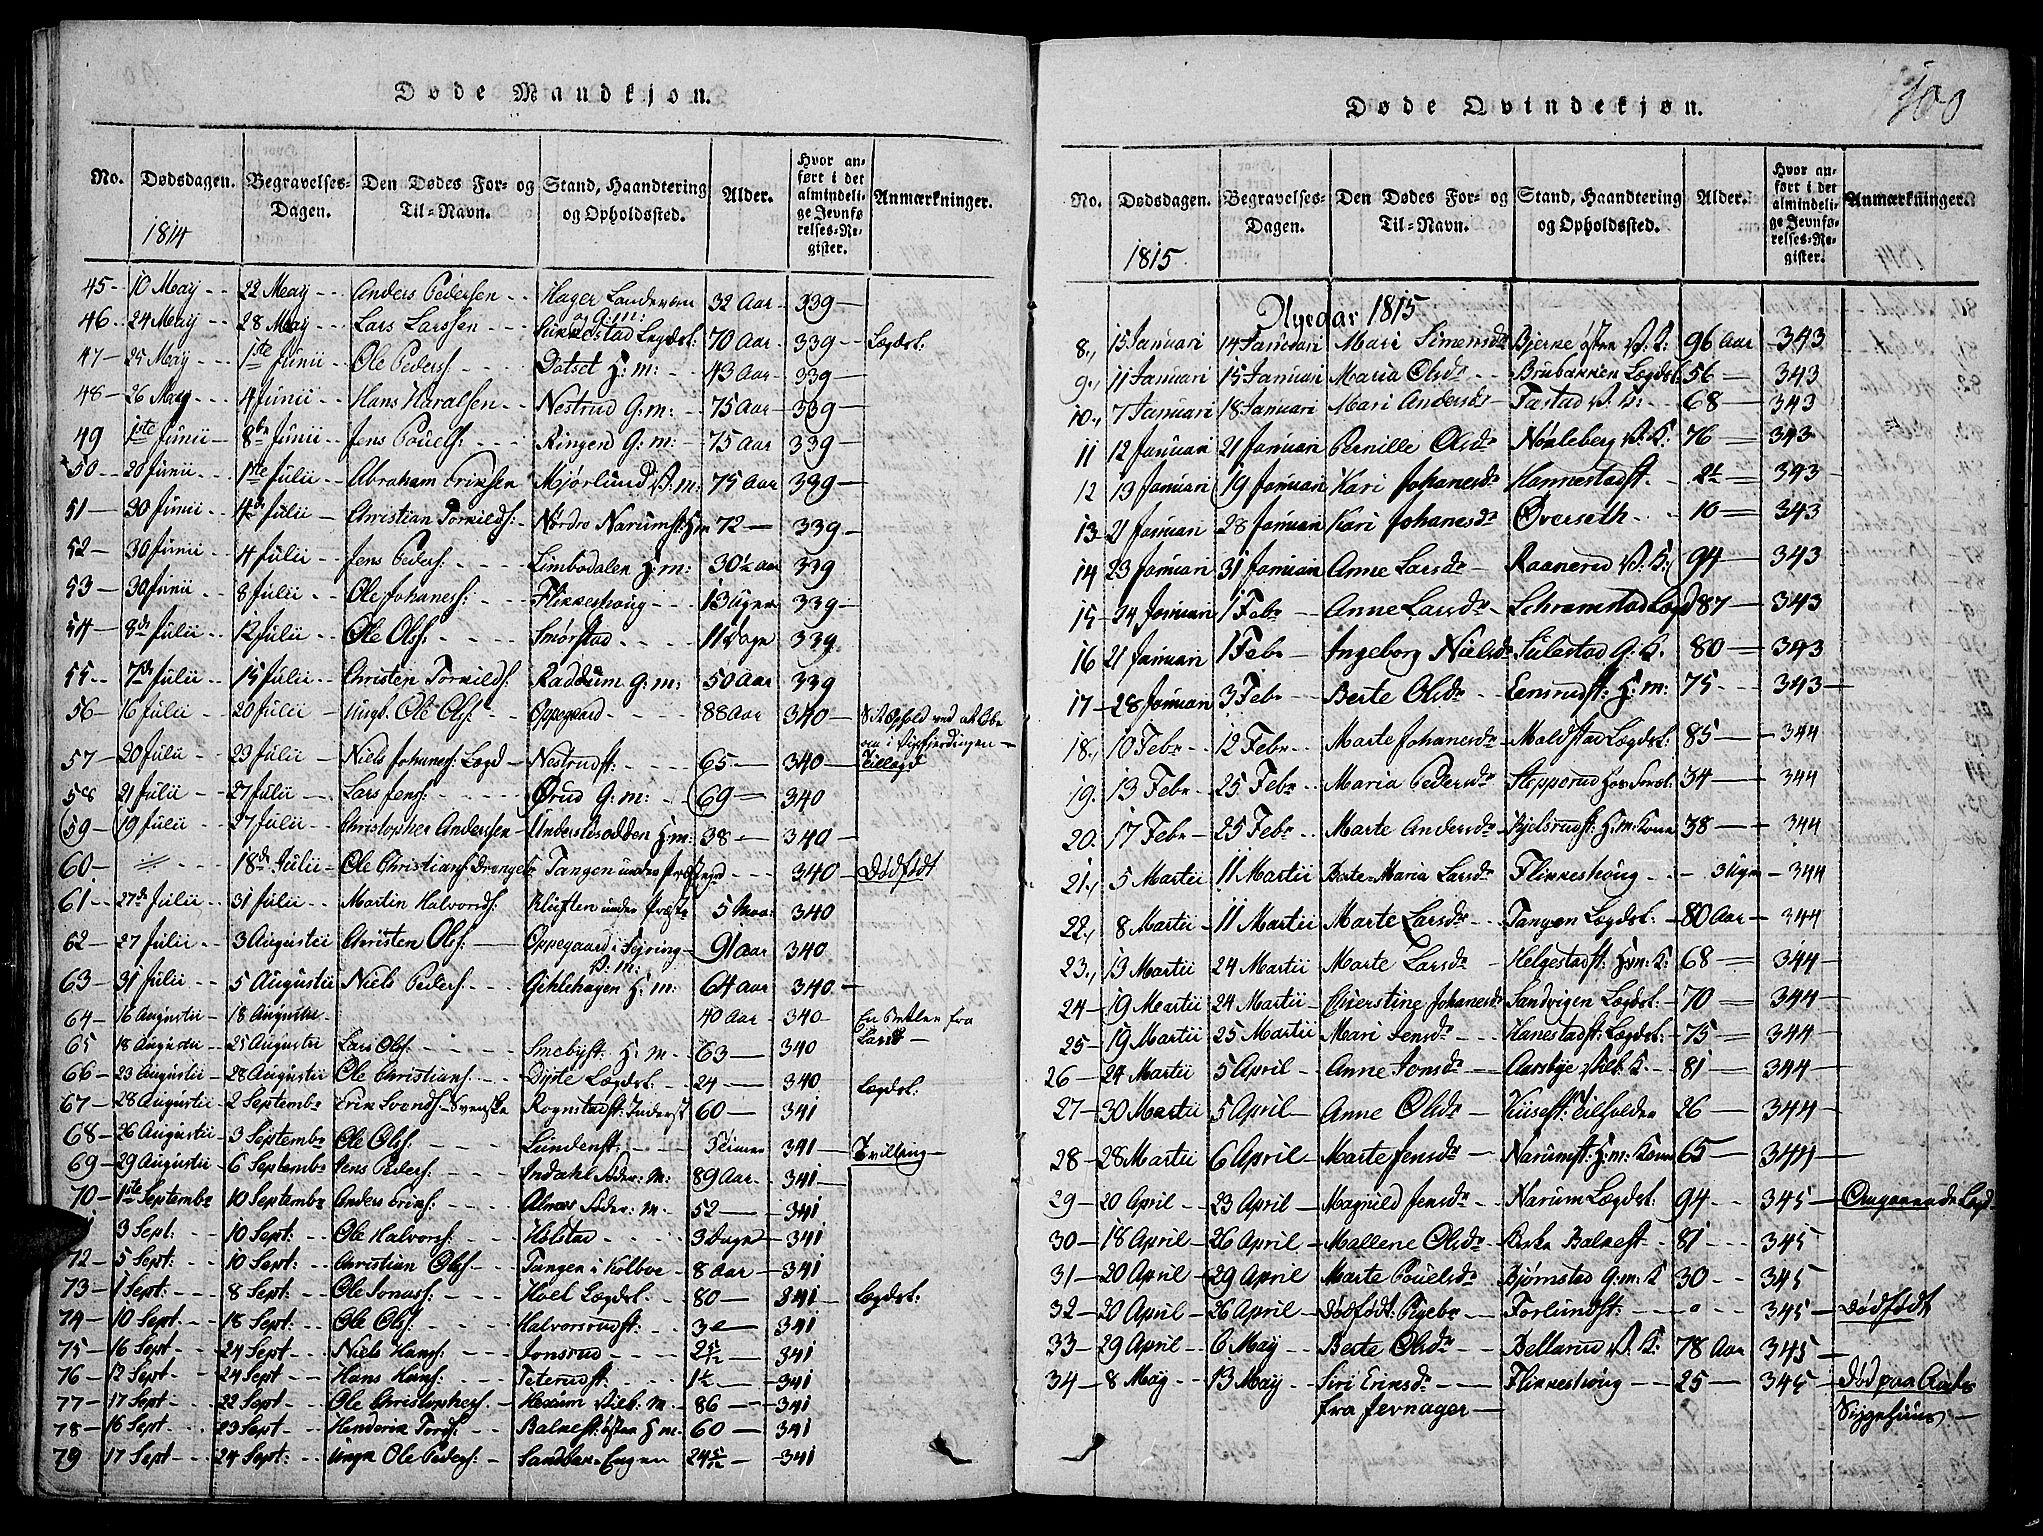 Døde Mandkjøn.
No. Dødsdagen. Begravelses-Dagen. Den Dødes For- og Til-Navn. Stand, Haandtering og Opholdssted. Alder. Hvor anført i det almindelige Jevnførelses-Register. Anmærkninger.
1814
45 - 10 May - - 22 May - - Anders Pedersen - - Hager Landeværn og G: m: 32 Aar - 339 -
46 - - 24 May - - 28 May - - Lars Larssen - - - Lægdsl: 70 Aar - 339 - Lægdsl:
47 - 25 May - - 1ste Junii - - Ole Peders: - - Dotset H: m: - - 43 Aar - 339 -
48 - 26 May - - 4 Junii - - Hans Haralsen - - Nestrud G: m: - - 75 Aar - 339 -
49 1ste Junii - - 8de Junii - - Jens Pouels: - - - Ringen G: m: - 75 Aar 339 -
50 - - 20 Junii - - 1ste Julii - - Abraham Eriksen Mjørlund V: m: 75 Aar 339 -
51 - 30 Junii - - 4de Julii - - Christian Torkilds: - Nordre Narumst: H: m 72 - 339 -
52 - 30 Junii - - 4 Julii - - Jens Peders: - - - Limbodalen H: m: - 30½ Aar 339
53 - 30 Junii - 8 Julii - - Ole Johanes: - - Flikkeshoug - - - 13 Uger 339 -
54 - 8de Julii - - 12 Julii - - Ole Ols: - - - Smørstad - - - - 11 Dage 339
55 - - 7de Julii - - 15 Julii - - Christen Torkilds: Raddum G: m: - - 50 Aar 339
56 - 16 Julii - - 20 Julii - - Ungk: Ole Ols: - - Oppegaard - - - 88 Aar 340 -
57 - 20 Julii - - 23 Julii - - Niels Johanes: Lægd - Nestrudst: - - - 65 - - 340 -
58 21 Julii - - 27 Julii - - Lars Jens: - - - Ørud G: m: - - 69 - 340
59 - 19 Julii - - 27 Julii - - Christopher Anderssen - H: m: 38 - 340 -
60. - " - - 18de Julii - Ole Christians: Drengeb: Tangen under - - - 340 - Dødfødt
61 - - 27de Julii - 31 Julii - - Martin Halvords: Kluften under 5 340
62 - 27 Julii - - 3 Augustii Christen Ols: - Oppegaard i V: m: 91 Aar 340
63 - 31 Julii - - 5 Augustii Niels Peders: - Gihlehagen H: m: 64 Aar 340 -
64 - 16 Augustii - 18 Augustii - 40 Aar - 340 - En Betler fra Land -
65 18 Augustii - 25 Augustii Lars Ols: - - - Smebyst: H: m - - 63 - 340
66 - 23 Augustii - 28 Augustii Ole Christians: - - Dyste Lægdsl: - - 24 - 340 Lægdsl:
67 - 28 Augustii - 2 Septembr Erik Svends: Svenske Rognstadst: Inderst 60 - 341
68 - 26 Augustii - 3 Septembr Ole Ols: - - - Lundenst: - - - Timer 341 - Tvilling -
69 - 29 Augustii - 6 Septembr Jens Peders: - - - Indahl Søder: M: 89 Aar - 341
70 - 1ste Septembr 10 Septembr Anders Eriks: - - Alnæs Søder: M - - 52 - - 341
3 Sept: - - 10 Sept: - - Ole Halvors: - - Holstad - - - - 3 Dage - 341
72 - 5 Sept: - - 10 Sept: - - Christian Ols: - - Tangen i Kolbue - 8 Aar - 341
73 - 1 Sept: - - 8 Sept: - - Ole Jonas: - - - Hoel Lægdsl: - - 80 - 341 - Lægdsl:
74 - 10 Sept: - - 18 Sept - - Ole Ols: - - - Halvorsrudst: - - - 341
75 - 16 Sept - - 24 Sept - - Niels Hans: - - Jonsrud - - - - 341
76 - 12 Sept - - 24 Sept - - Hans Hans: - - Teterudst: - - - 1½ - - 341
77 - 17 Sept - - 22 Sept - - Ole Christophers: - Hexum Vilb: M - - 86 - - 341
78 - 16 Sept - - 23 Sept - - Henderik Tores: - - Balkest: østen H: m - 60 - - 341
79 17 Sept - - 24 Sept: - - Ungk Ole Peders: - Sandbæk-Engen 24 5/12 - 341
Døde Qvindekjøn.
100
No. Dødsdagen. Begravelses-Dagen. Den Dødes For- og Til-Navn. Stand, Haandtering og Opholdssted. Alder. Hvor anført i det almindelige Jevnførelses-Register. Anmærkninger.
1815.
Nyeaar 1815
8., 15 Januari 14 Januari Mari Simensdr Bjerke østen V: K: 96 Aar - 343
9., 11 Januari 15 Januari Maria Olsdr - - Brubakken Lægdsl: 56 - 343
10., 7 Januari 18 Januari Mari Andersdr - Fastad V: K: - 68 - 343
11 12 Januari 21 Januari Pernille Olsdr Nøkleberg V: K: 76 - 343
12 13 Januari 19 Januari Kari Johanesdr Hannestadst - 2½ - 343
13 - 21 Januari 28 Januari Kari Johanesdr Øverseth - - - 10 - 343
14 23 Januari 31 Januari Anne Larsdr - Raanerud V: K: 94 - 343
15 - 24 Januari 1 Febr - Anne Larsdr - Schramstad Lægd 87 - 343
16 21 Januari 1 Febr - Ingeborg Nielsdr Sulestad G: K. 80 - 343
17 - 28 Januari 3 Febr - - Berte Olsdr - Eensrudst: H: m: 75 - - 343 -
18., 10 Febr - 12 Febr - - Marte Johanesdr - Maldstad Lægdsl: 85 - - 344
19. 13 Febr - 25 Febr - Maria Pedersdr - Stepperud 34 - - 344
20. 17 Febr - 25 Febr - Marte Andersdr - Kjølsrudst: H: m: Kone 38 - - 344
21., 5 Martii 11 Martii Berte Maria Larsdr Flikkeshoug - - 3 Uger - 344
22., 8 Martii - 11 Martii - Marte Larsdr - - Tangen Lægdsl: - 80 Aar - 344
23., 13 Martii 24 Martii - Marte Larsdr - Helgestadst: H: m: K: 68 - - 344 -
24 - 19 Martii - 24 Martii - Cherstine Johanesdr Sandvigen Lægdsl: - 70 - 344
25 - 19 Martii 25 Martii - Mari Jensdr - - Hanestadst: Lægdsl: - 75 - 344
26 - 24 Martii 5 April - Anne Jonsdr - Aasbye Vilb: K - - 81 - 344 -
27 - 30 Martii 5 April - Anne Olsdr - 26 - - 344 -
28 - 28 Martii 6 April - Marte Jensdr - Narumst: H: m: Kone 65 - - 344 -
29 - 20 April - 23 April - Magnild Jensdr Narum Lægdsl: 94 - - 345 - Omgaaende Lægdsl.
30 - 18 April - 26 April - Mallene Olsdr Berke Balkest - 81 - - 345
31 - 20 April - 29 April - Marte Pouelsdr Bjørnstad G: m: K 30 - - 345
32 - 20 April - 26 April - Dødfødt Pigebr - Forlundst: - - - - - 345 - Dødfødt
33 - 29 April - 6 May - Berte Olsdr - Bellerud V: K: 78 Aar 345 -
34 - 8 May - 13 May - Siri Eriksdr - - Flikkeshoug - - 25 - - 345 - Død paa
fra Jevnager -